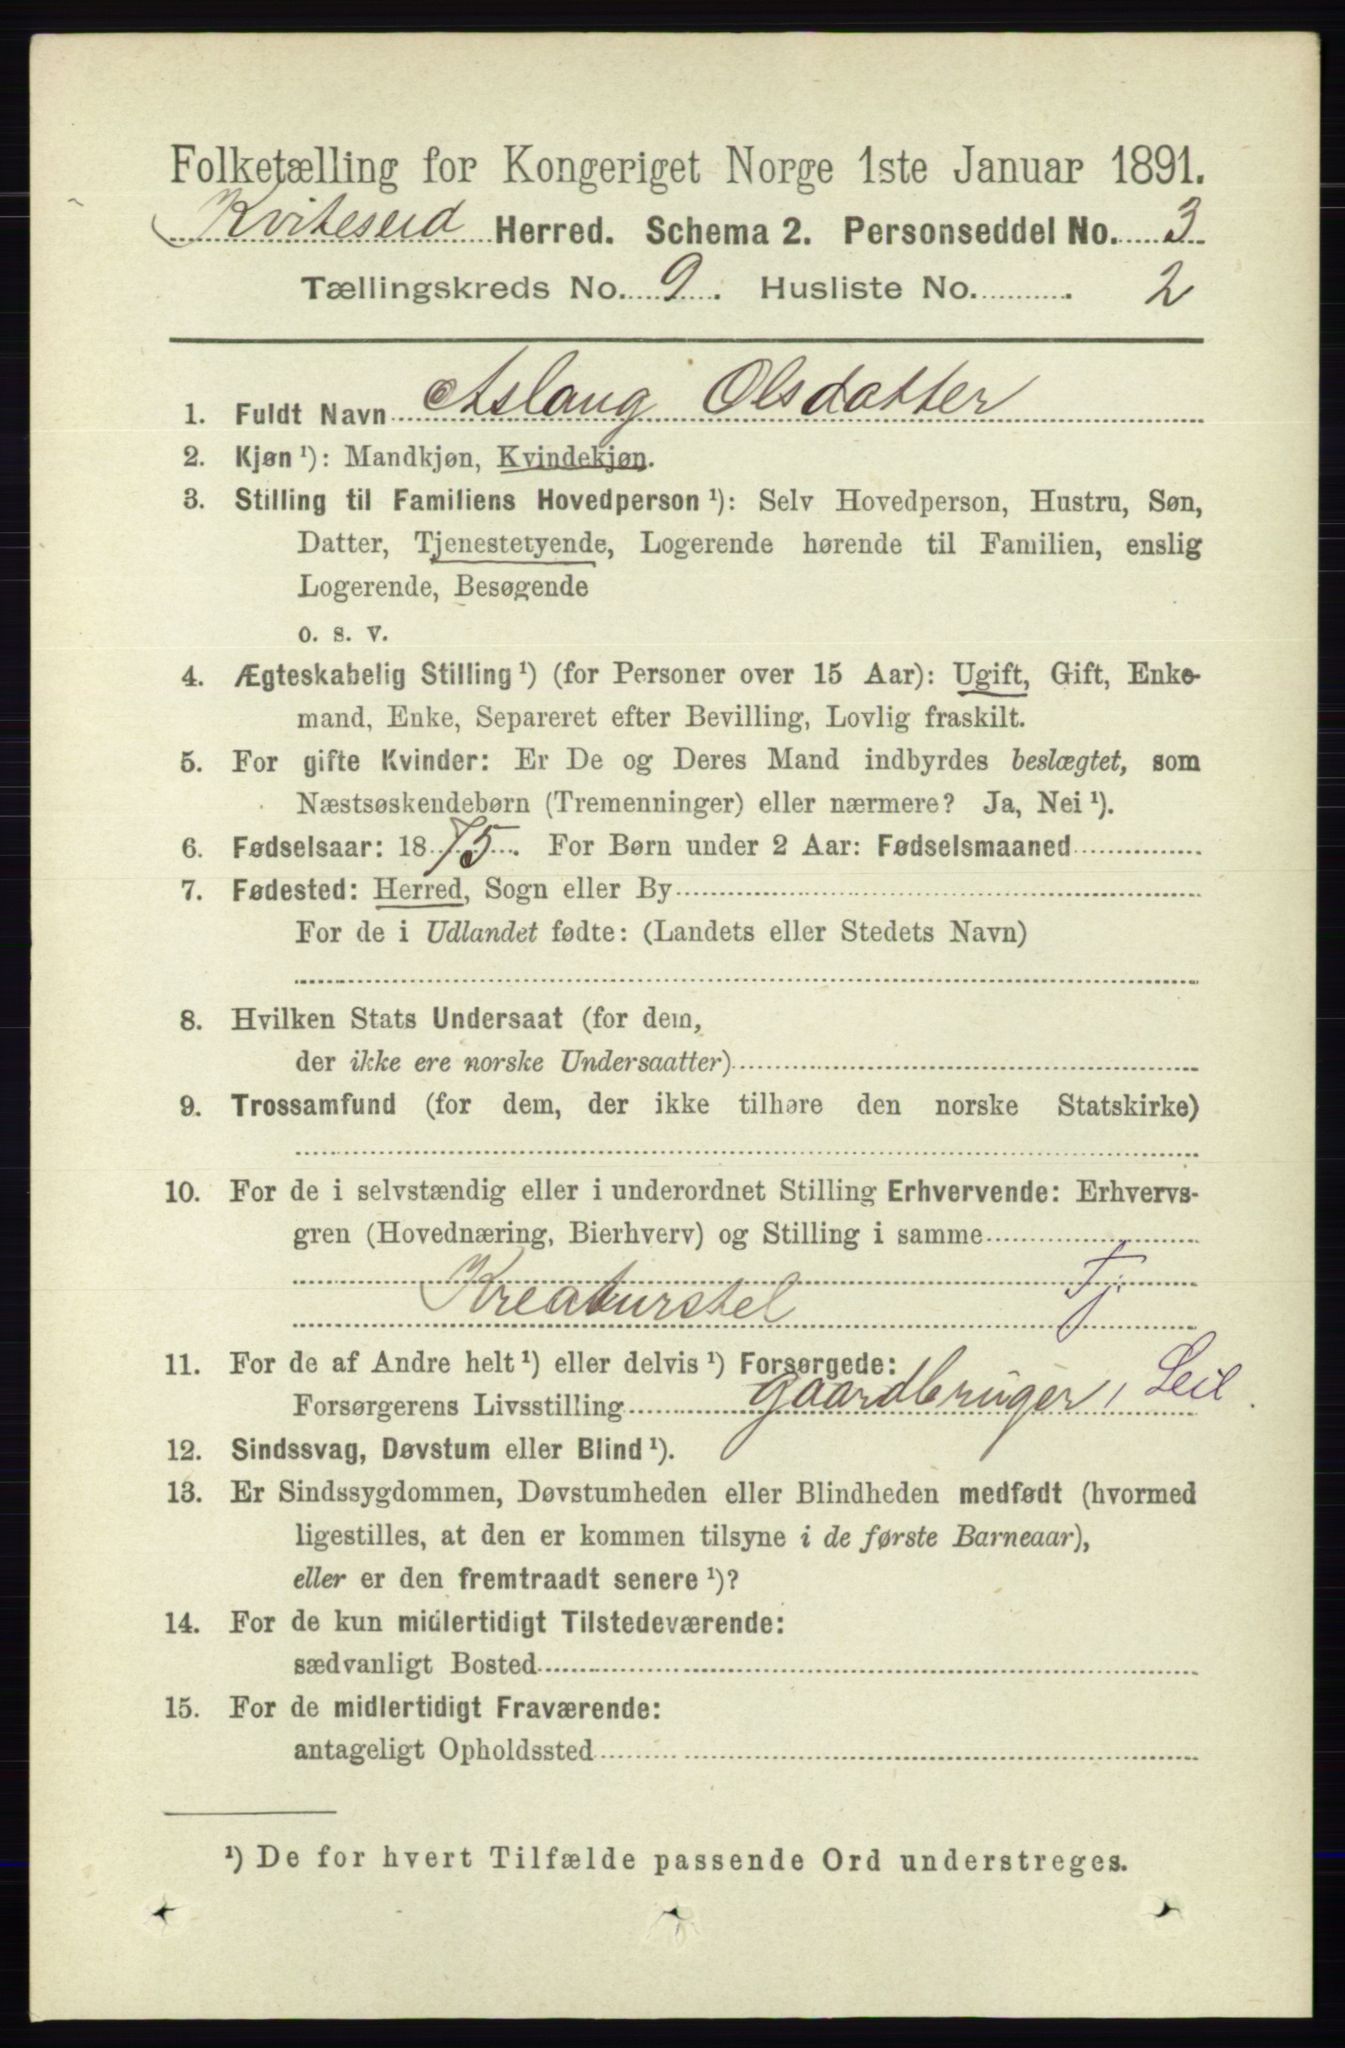 Folketælling for Kongeriget Norge 1ste Januar 1891.
Kviteseid Herred. Schema 2. Personseddel No. 3
Tællingskreds No. 9. Husliste No. 2
1. Fuldt Navn Aslaug Olsdatter
2. Kjøn ¹): Mandkjøn, Kvindekjøn.
3. Stilling til Familiens Hovedperson ¹): Selv Hovedperson, Hustru, Søn,
Datter, Tjenestetyende, Logerende hørende til Familien, enslig
Logerende, Besøgende
o. s. v.
4. Ægteskabelig Stilling ¹) (for Personer over 15 Aar): Ugift, Gift, Enke-
mand, Enke, Separeret efter Bevilling, Lovlig fraskilt.
5. For gifte Kvinder: Er De og Deres Mand indbyrdes beslægtet, som
Næstsøskendebørn (Tremenninger) eller nærmere? Ja, Nei ¹).
6. Fødselsaar: 1875. For Børn under 2 Aar: Fødselsmaaned
7. Fødested: Herred, Sogn eller By
For de i Udlandet fødte: (Landets eller Stedets Navn)
8. Hvilken Stats Undersaat (for dem,
der ikke ere norske Undersaatter)
9. Trossamfund (for dem, der ikke tilhøre den norske Statskirke)
10. For de i selvstændig eller i underordnet Stilling Erhvervende: Erhvervs-
gren (Hovednæring, Bierhverv) og Stilling i samme
Kreaturstel Tj.
11. For de af Andre helt ¹) eller delvis ¹) Forsørgede:
Forsørgerens Livsstilling gaardbruger, Leil.
12. Sindssvag, Døvstum eller Blind ¹).
13. Er Sindssygdommen, Døvstumheden eller Blindheden medfødt (hvormed
ligestilles, at den er kommen tilsyne i de første Barneaar),
eller er den fremtraadt senere ¹)?
14. For de kun midlertidigt Tilstedeværende:
sædvanligt Bosted
15. For de midlertidigt Fraværende:
antageligt Opholdssted
¹) De for hvert Tilfælde passende Ord understreges.